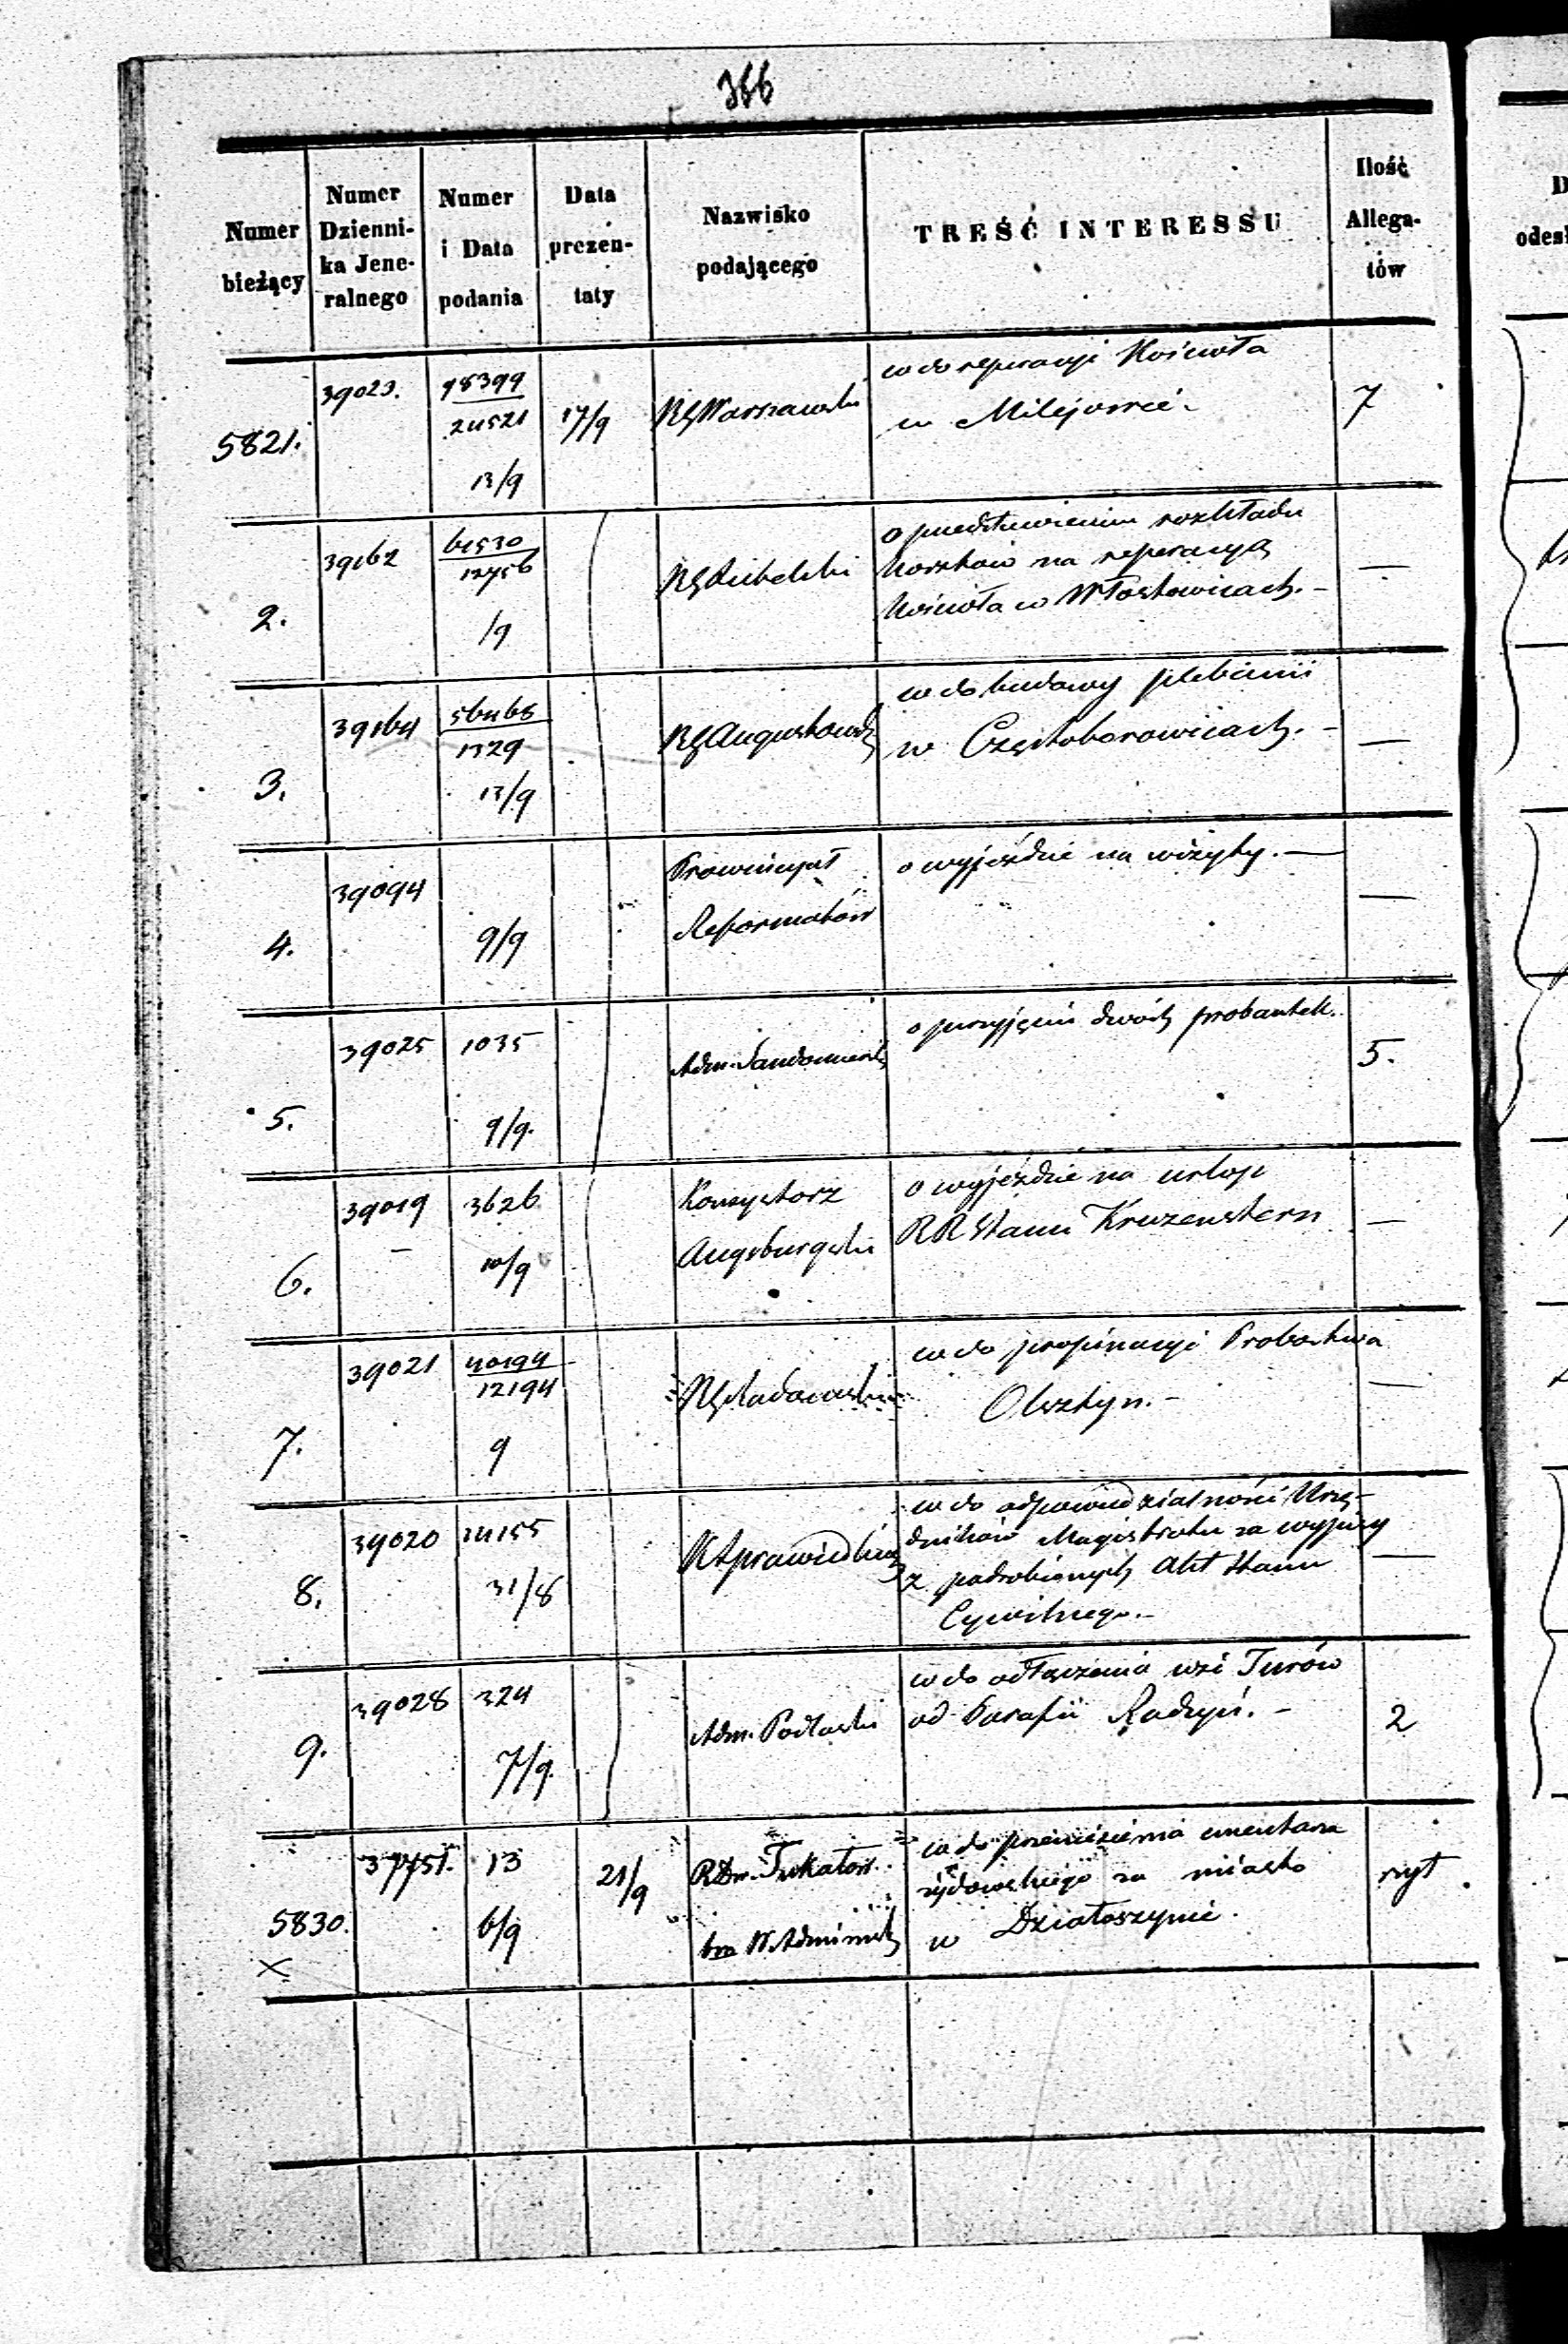 366
Numer
bieżący
Numer
Dzienni-
ka Jene-
ralnego
Numer
i Data
podania
Data
prezen-
taty
Nazwisko
podającego
TREŚĆ INTERESSU
Ilość
Allega-
tów
5821.
39023.
98399
24521
13/9
17/9
RG Warszawski
co do reperacyi Kościoła
w Milejowie.
7
2.
39162
61530
12756
/9
RG Lubelski
o przedstawieniu rozkładu
kosztów na reperacyą
Kościoła w Włostowicach. –
—
3.
39164
56468
1329
13/9
RG Augustowski
co do budowy plebanii
w Częstoborowicach. –
—
4.
39094
9/9
Prowincyał
Reformatów
o wyjeździe na wizyty. —
—
5.
39025
1035
9/9.
Adm. Sandomierski
o przyjęciu dwóch probantek.
5.
6.
39019
–
3626
10/9
Konsystorz
Augsburgski
o wyjeździe na urlop
RR Stanu Kruzenstern
—
7.
39021
40194
12194
9
RG Radomski
co do propinacyi Probostwa
Olsztyn. –
—
8.
39020
14155
31/8
K Sprawiedliwoś
co do odpowiedzialności Urzę-
dników Magistratu za wypisy
z podrobionych Akt Stanu
Cywilnego. –
—
9.
39028
324
7/9.
Adm. Podlaski
co do odłączenia wsi Turów
od Parafii Radzyń. –
2
5830.
×
37751.
13
6/9
21/9
W. Administ
co do przeniesienia cmentarza
żydowskiego za miasto
w Działoszynie.